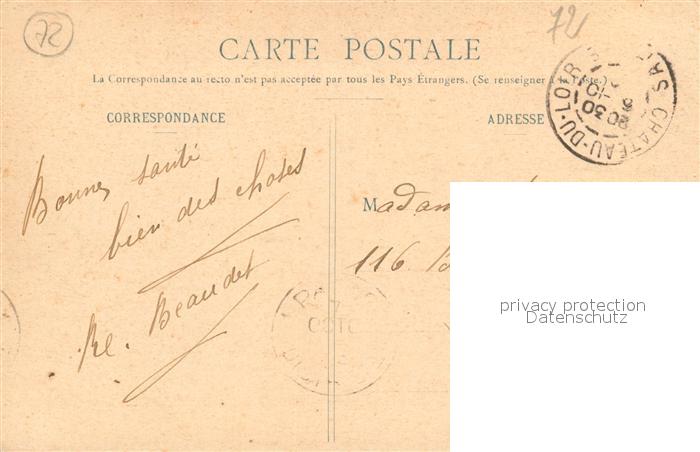 72
72
CARTE POSTALE
La Correspondance au recto n'est pas acceptée par tous les Pays Étrangers. (Se renseigner à la Poste.)
CORRESPONDANCE
ADRESSE
CHATEAU-DU-LOIR
20 30
Bonne santé
bien des choses
Beaudet
Madam
116
OCTO
privacy protection
Datenschutz